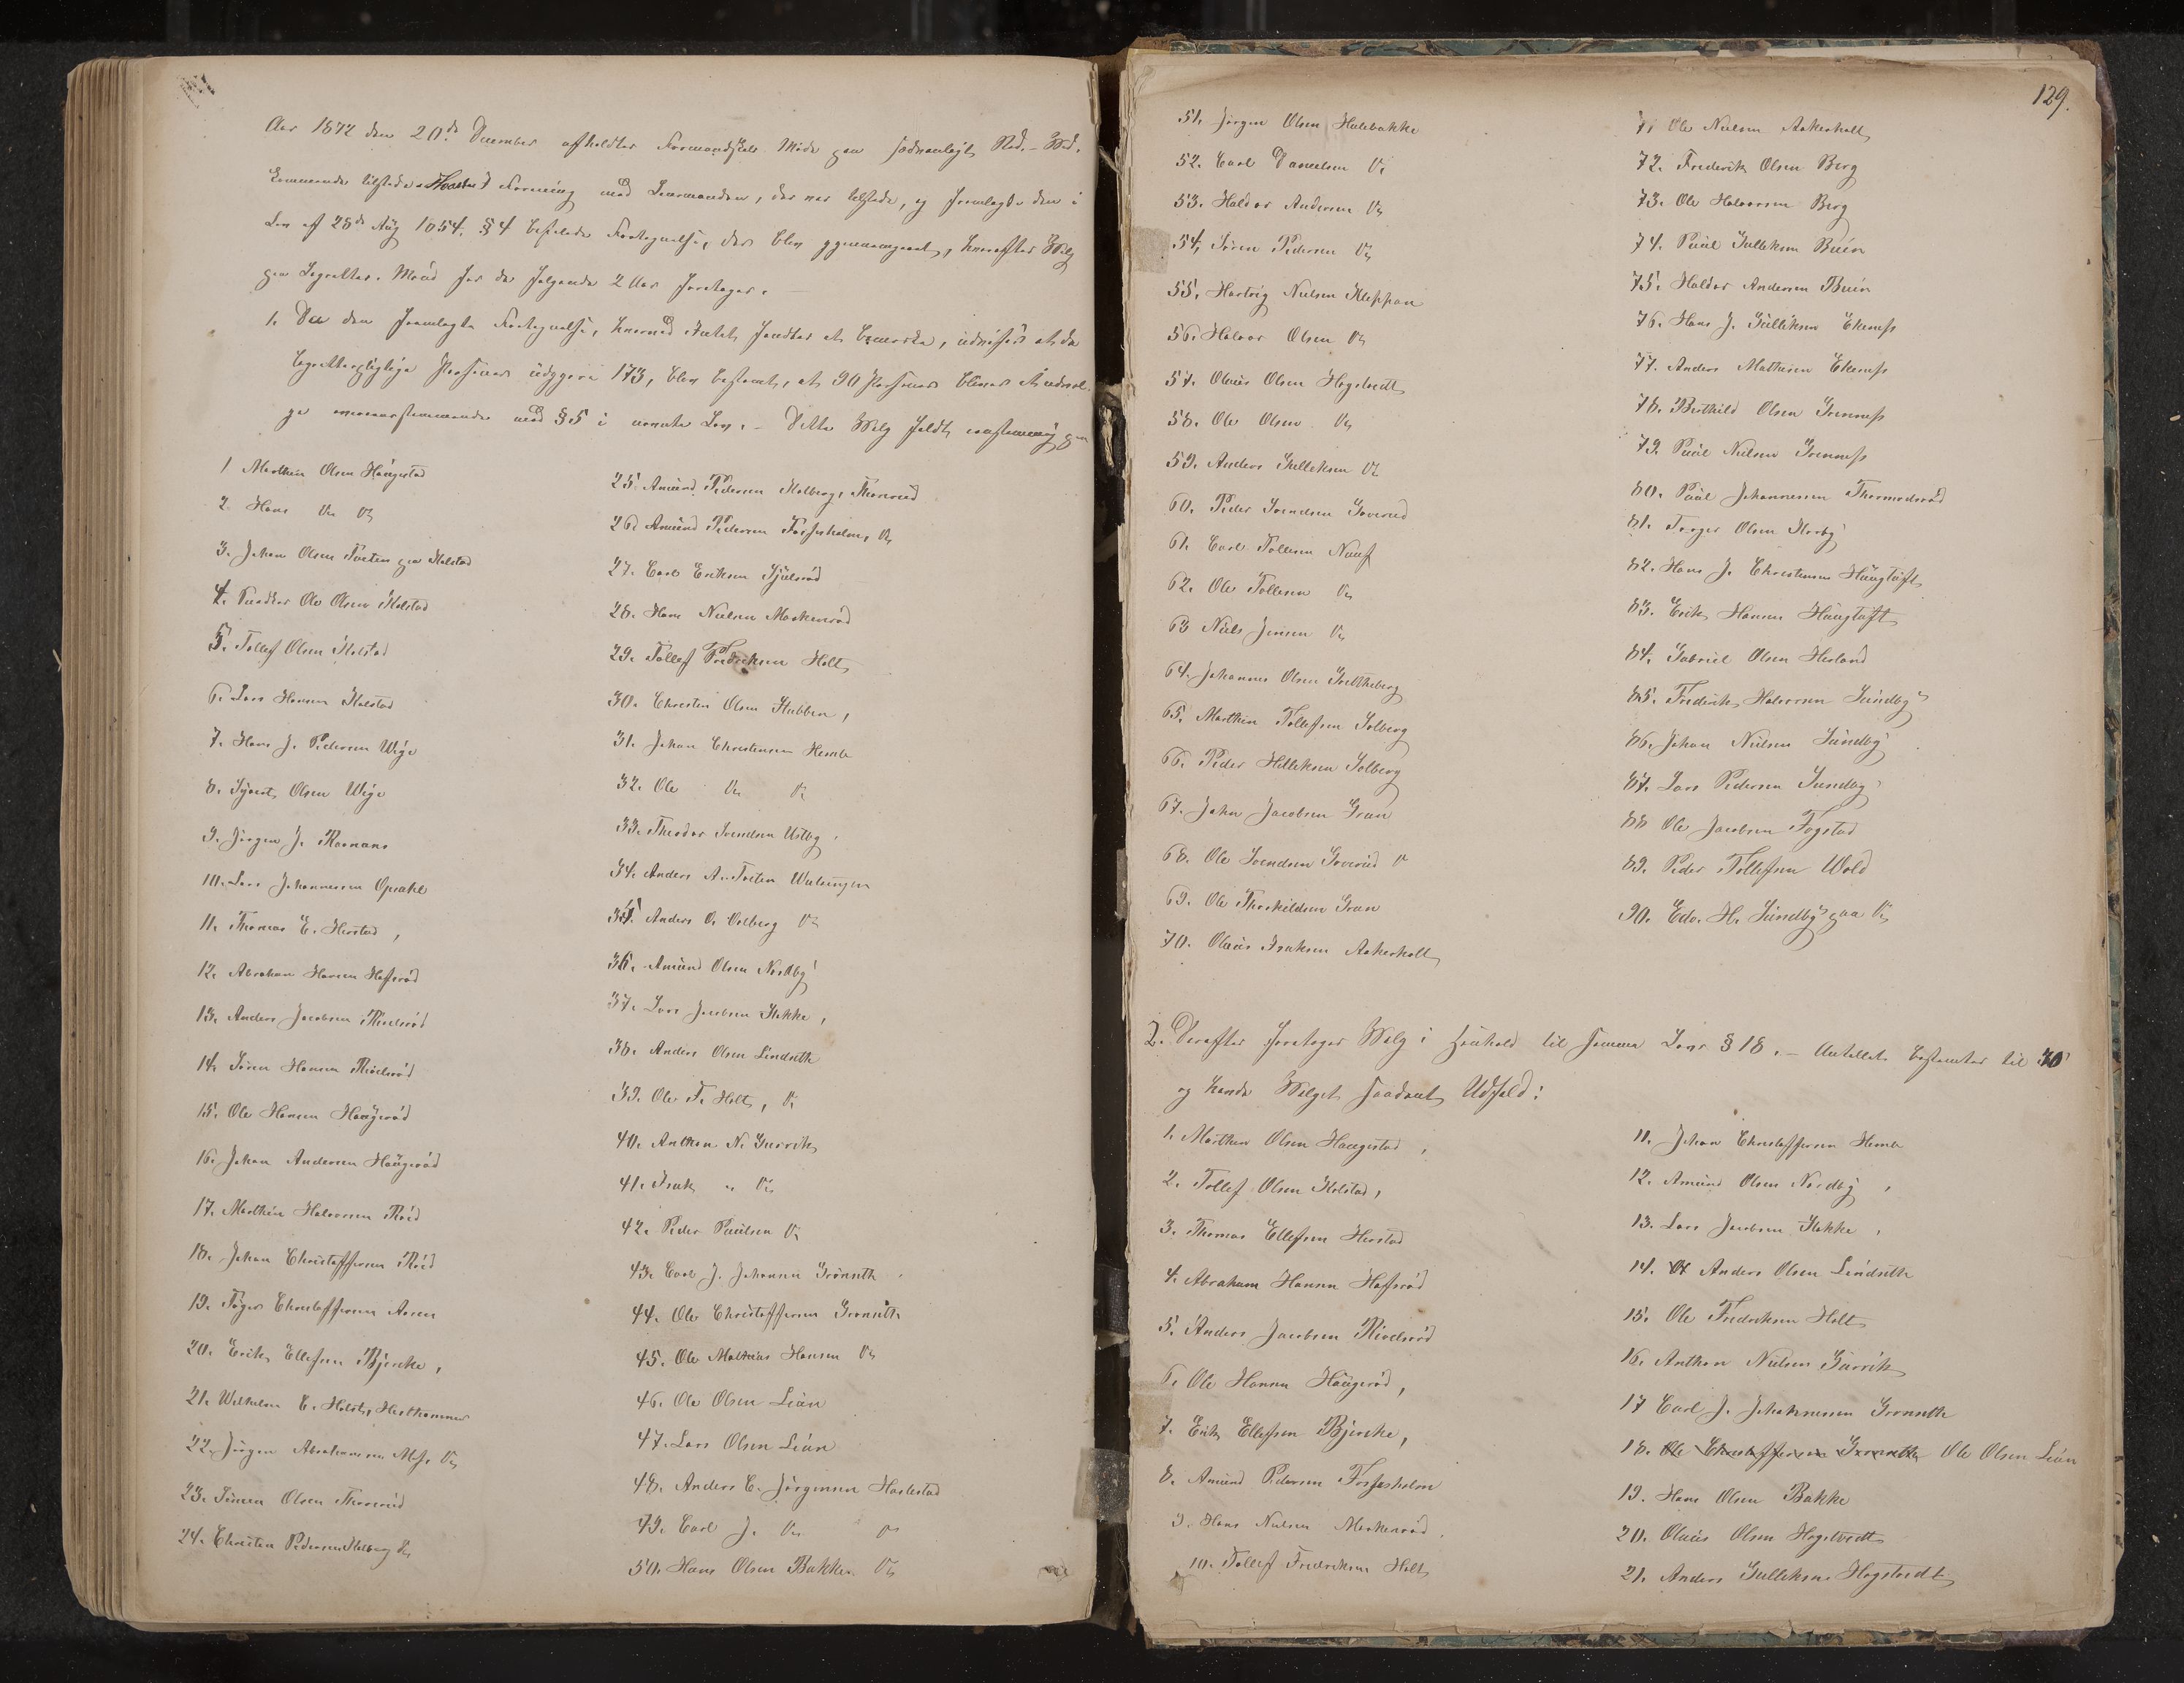 Aar 1872 den 20de December afholdtes Formandskabs Møde paa sædvanligt Sted. – Ved-
kommende tilstede. Hvorved Forening med Lensmanden, der var tilstede, og fremlagde den i
Lov af 28de Aug 1854. § 4 befalede Fortegnelse, der blev gjennemgaaet, hvorefter Valg
paa Lagrettes-Mænd for de følgende 2 Aar foretages. –
1. Da den fremlagte Fortegnelse, hvorved Intet fandtes at bemærke, udviser at de
Lagrettepligtige Personer udgjøre 173, blev bestemt, at 90 Personer bliver at udvæl-
ge overeensstemmende med § 5 i nævnte Lov. – Dette Valg faldt eenstemmig paa
1 Marthin Olsen Haugestad
2. Hans Do Do
3. Johan Olsen Toeten paa Holstad
4. Ole Olsen Holstad
5. Tollef Olsen Holstad
6. Lars Hansen Holstad
7. Hans J. Pedersen Wige
8. Syvert Olsen Wige
9. Jørgen J. Romans
10. Lars Johannesen Opsahl
11. Thomas E. Herstad,
12. Abraham Hansen Hafsrød
13. Anders Jacobsen Rivelsrød
14. Søren Hansen Rivelsrød
15. Ole Hansen Haugerød
16. Johan Andersen Haugerød
17. Marthin Halvorsen Rød
18. Johan Christoffersen Rød
19. Christoffersen Aasen
20. Erik Ellefsen Bjercke,
21. Wilhelm C. Holst, Herthammer
22. Jørgen Abrahamsen Do
23. Simen Olsen Thorerud
24. Christen Pedersen Holberg Do
25. Amund Pedersen Holberg, Thorerud
26. Amund Pedersen Fossesholm, Do
27. Carl Eriksen Gjulsrød
28. Hans Nielsen Morkenrød
29. Tollef Fredriksen Holt
30. Christen Olsen Stubben,
31. Johan Christensen Hemb
32. Ole Do Do
33. Theodor Svendsen Ustby.
34. Anders A. Toeten Wulungen
35. Anders O. Volberg Do
36. Amund Olsen Nordby
37. Lars Jacobsen Hekke,
38. Anders Olsen Lindseth
39. Ole F. Holt, Do
40. Anthon N. Gurrik
41. Isak " Do
42. Peder Paulsen Do
43. Carl J. Johansen Grønseth
44. Ole Christoffersen Grønseth
45. Ole Mathias Hansen Do
46. Ole Olsen Lian
47. Lars Olsen Lian
48. Anders C. Jørgensen Haslestad
49. Carl J. Do Do
50. Hans Olsen Bakke. Do
129.
51. Jørgen Olsen Holebakke
52. Carl Danielsen Do
53. Haldor Andersen Do
54. Søren Pedersen Do
55. Hartvig Nielsen Kleppan
56. Halvor Olsen Do
57. Olaus Olsen Hogstvedt
58. Ole Olsen Do
59. Anders Gulleksen Do
60. Peder Svendsen Goverud
61. Carl Tollesen Næss
62. Ole Tollesen Do
63 Niels Jensen Do
64. Johannes Olsen
65. Marthin Tollefsen Solberg
66. Peder Helleksen Solberg
67. John Jacobsen Gran
68. Ole Svendsen Goverud Do
69. Ole Thorkildsen Gran
70. Olaus Isaksen Askerholt
71 Ole Nielsen Askerholt
72. Frederik Olsen Berg
73. Ole Halvorsen Berg
74. Paul Gulleksen Buin
75. Haldor Andersen Buin
76. Hans J. Gulliksen Ekeness
77. Anders Mathisen Ekeness
78. Berthild Olsen Grenness
79. Paul Nielsen Grenness
80. Paul Johannesen Thormodsrød
81. Torger Olsen Horby
82. Hans J. Christensen Haugtuft
83. Erik Hansen Haugtuft
84. Gabriel Olsen Herland
85. Frederik Halvorsen Sundby
86. Johan Nielsen Sundby
87. Lars Pedersen Sundby
88 Ole Jacobsen Fogstad
89. Peder Tollefsen Wold
90. Edv. H. Sundby paa Do
2. Derefter foretoges Valg i Henhold til samme Lovs § 18. – Antallet bestemtes til 30
og havde Valget saadant Udfald:
1. Marthin Olsen Haugestad,
2. Tollef Olsen Holstad,
3. Thomas Ellefsen Herstad
4. Abraham Hansen Hafsrød
5. Anders Jacobsen Rivelsrød
6. Ole Hansen Haugerød,
7. Erik Ellefsen Bjercke,
8. Amund Pedersen Fossesholm
9. Hans Nielsen Morkenrød.
10. Tollef Fredriksen Holt
11. Johan Christoffersen Hemb
12. Amund Olsen Nordby,
13. Lars Jacobsen Hekke,
14. Anders Olsen Lindseth
15. Ole Fredriksen Holt
16. Anthon Nielsen Gurrik
17 Carl J. Johannesen Grønseth
18. Ole Christoffersen Grønseth Ole Olsen Lian
19. Hans Olsen Bakke
20. Olaus Olsen Hogstvedt
21. Anders Gulleksen Hogstvedt